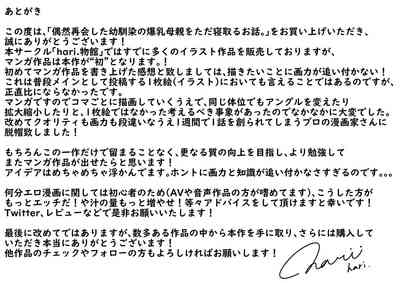 あとがき
この度は、「偶然再会した幼馴染の爆乳母親をただ寝取るお話。」をお買い上げいただき、
誠にありがとうございます！
本サークル「hari.物館」ではすでに多くのイラスト作品を販売しておりますが、
マンガ作品は本作が“初”となります。！
初めてマンガ作品を書き上げた感想と致しましては、描きたいことに画力が追い付かない！
これは普段メインとして投稿する1枚絵(イラスト)においても言えることではあるのですが、
正直比にならなかったです。
マンガですのでコマごとに描画していくうえで、同じ体位でもアングルを変えたり
拡大縮小したりと、1枚絵ではなかった考えるべき事象があったのでなかなかに大変でした。
改めてクオリティも画力も段違いなうえ1週間で1話を創られてしまうプロの漫画家さんに
脱帽致しました！
もちろんこの一作だけで留まることなく、更なる質の向上を目指し、より勉強して
またマンガ作品が出せたらと思います！
アイデアはめちゃめちゃ浮かんでます。ホントに画力と知識が追い付かなさすぎるのです。。。
何分エロ漫画に関しては初心者のため(AVや音声作品の方が嗜めてます)、こうした方が
もっとエッチだ！や汁の量もっと増やせ！等々アドバイスをして頂けますと幸いです！
Twitter、レビューなどで是非お願いいたします！
最後に改めてではありますが、数多ある作品の中から本作を手に取り、さらには購入して
いただき本当にありがとうございます！
他作品のチェックやフォローの方もよろしければお願いします！
hari.